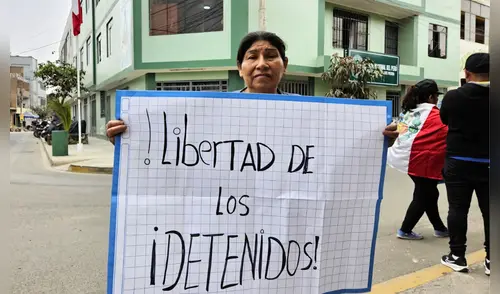 ! LibertAD DE
Los
¡DETENIDOS!